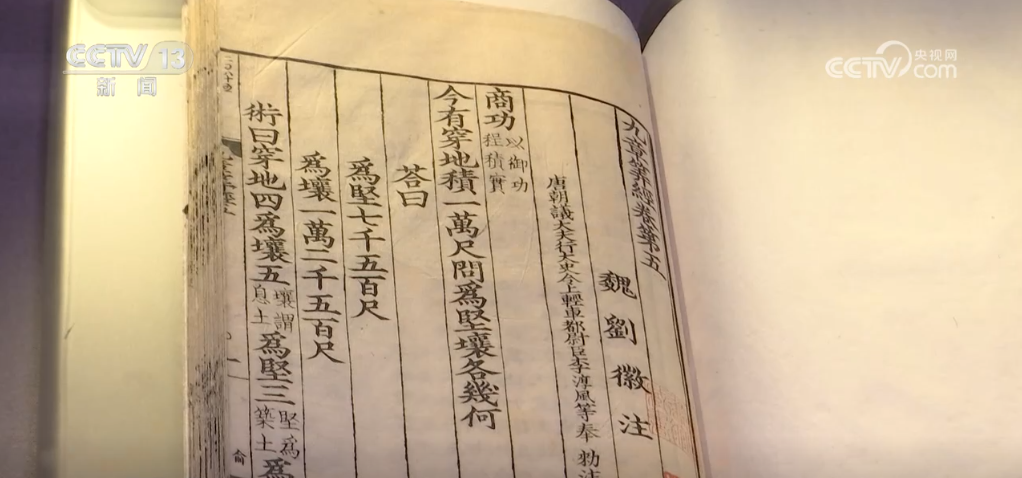 CCTV 13
新闻
央视网
CCTV.com
九章筭經卷第五
魏劉徽注
唐朝議大夫行太史令上輕車都尉臣李淳風等奉勑注
商功以御功程積實
今有穿地積一萬尺問爲堅壤各幾何
荅曰
爲堅七千五百尺
爲壤一萬二千五百尺
術曰穿地四爲壤五壤謂息土爲堅三堅爲築土爲
俞